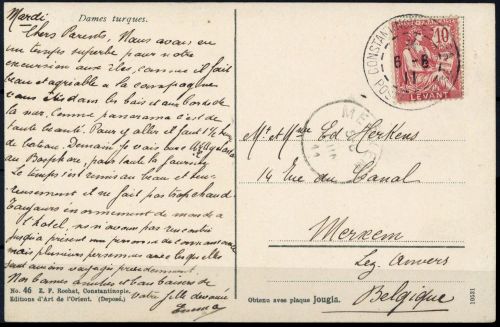 Mardi
Dames turques.
Chers Parents, Nous avons eu
un temps superbe pour notre
excursion aux îles, comme il fait
beau et agréable à la campagne
dans les bois et aux bords de
la mer, comme panorama c'est de
toute beauté. Pour y aller il faut 1½ heure
de bateau. Demain je vais avec
au Bosphore, par toute la
Le temps est remis au beau et heu-
reusement il ne fait pas trop chaud.
Toujours énormément de monde à
l'hôtel, nous n'avons pas rencontré
jusqu'à présent une personne de connaissance
mais plusieurs personnes avec lesquelles
nous avions voyagé précédemment.
Nos bonnes amitiés et bons baisers de
Votre fille dévouée
Emma
No. 46 E. F. Rochat, Constantinople.
Editions d'Art de l'Orient. (Deposé.)
10
LEVANT
CONSTANT
6 - 6
11
ME
11
Mr et Mme Ed Mertens
14 Rue du Canal
Merxem
Lez Anvers
Belgique
Obtenu avec plaque Jougla.
10631